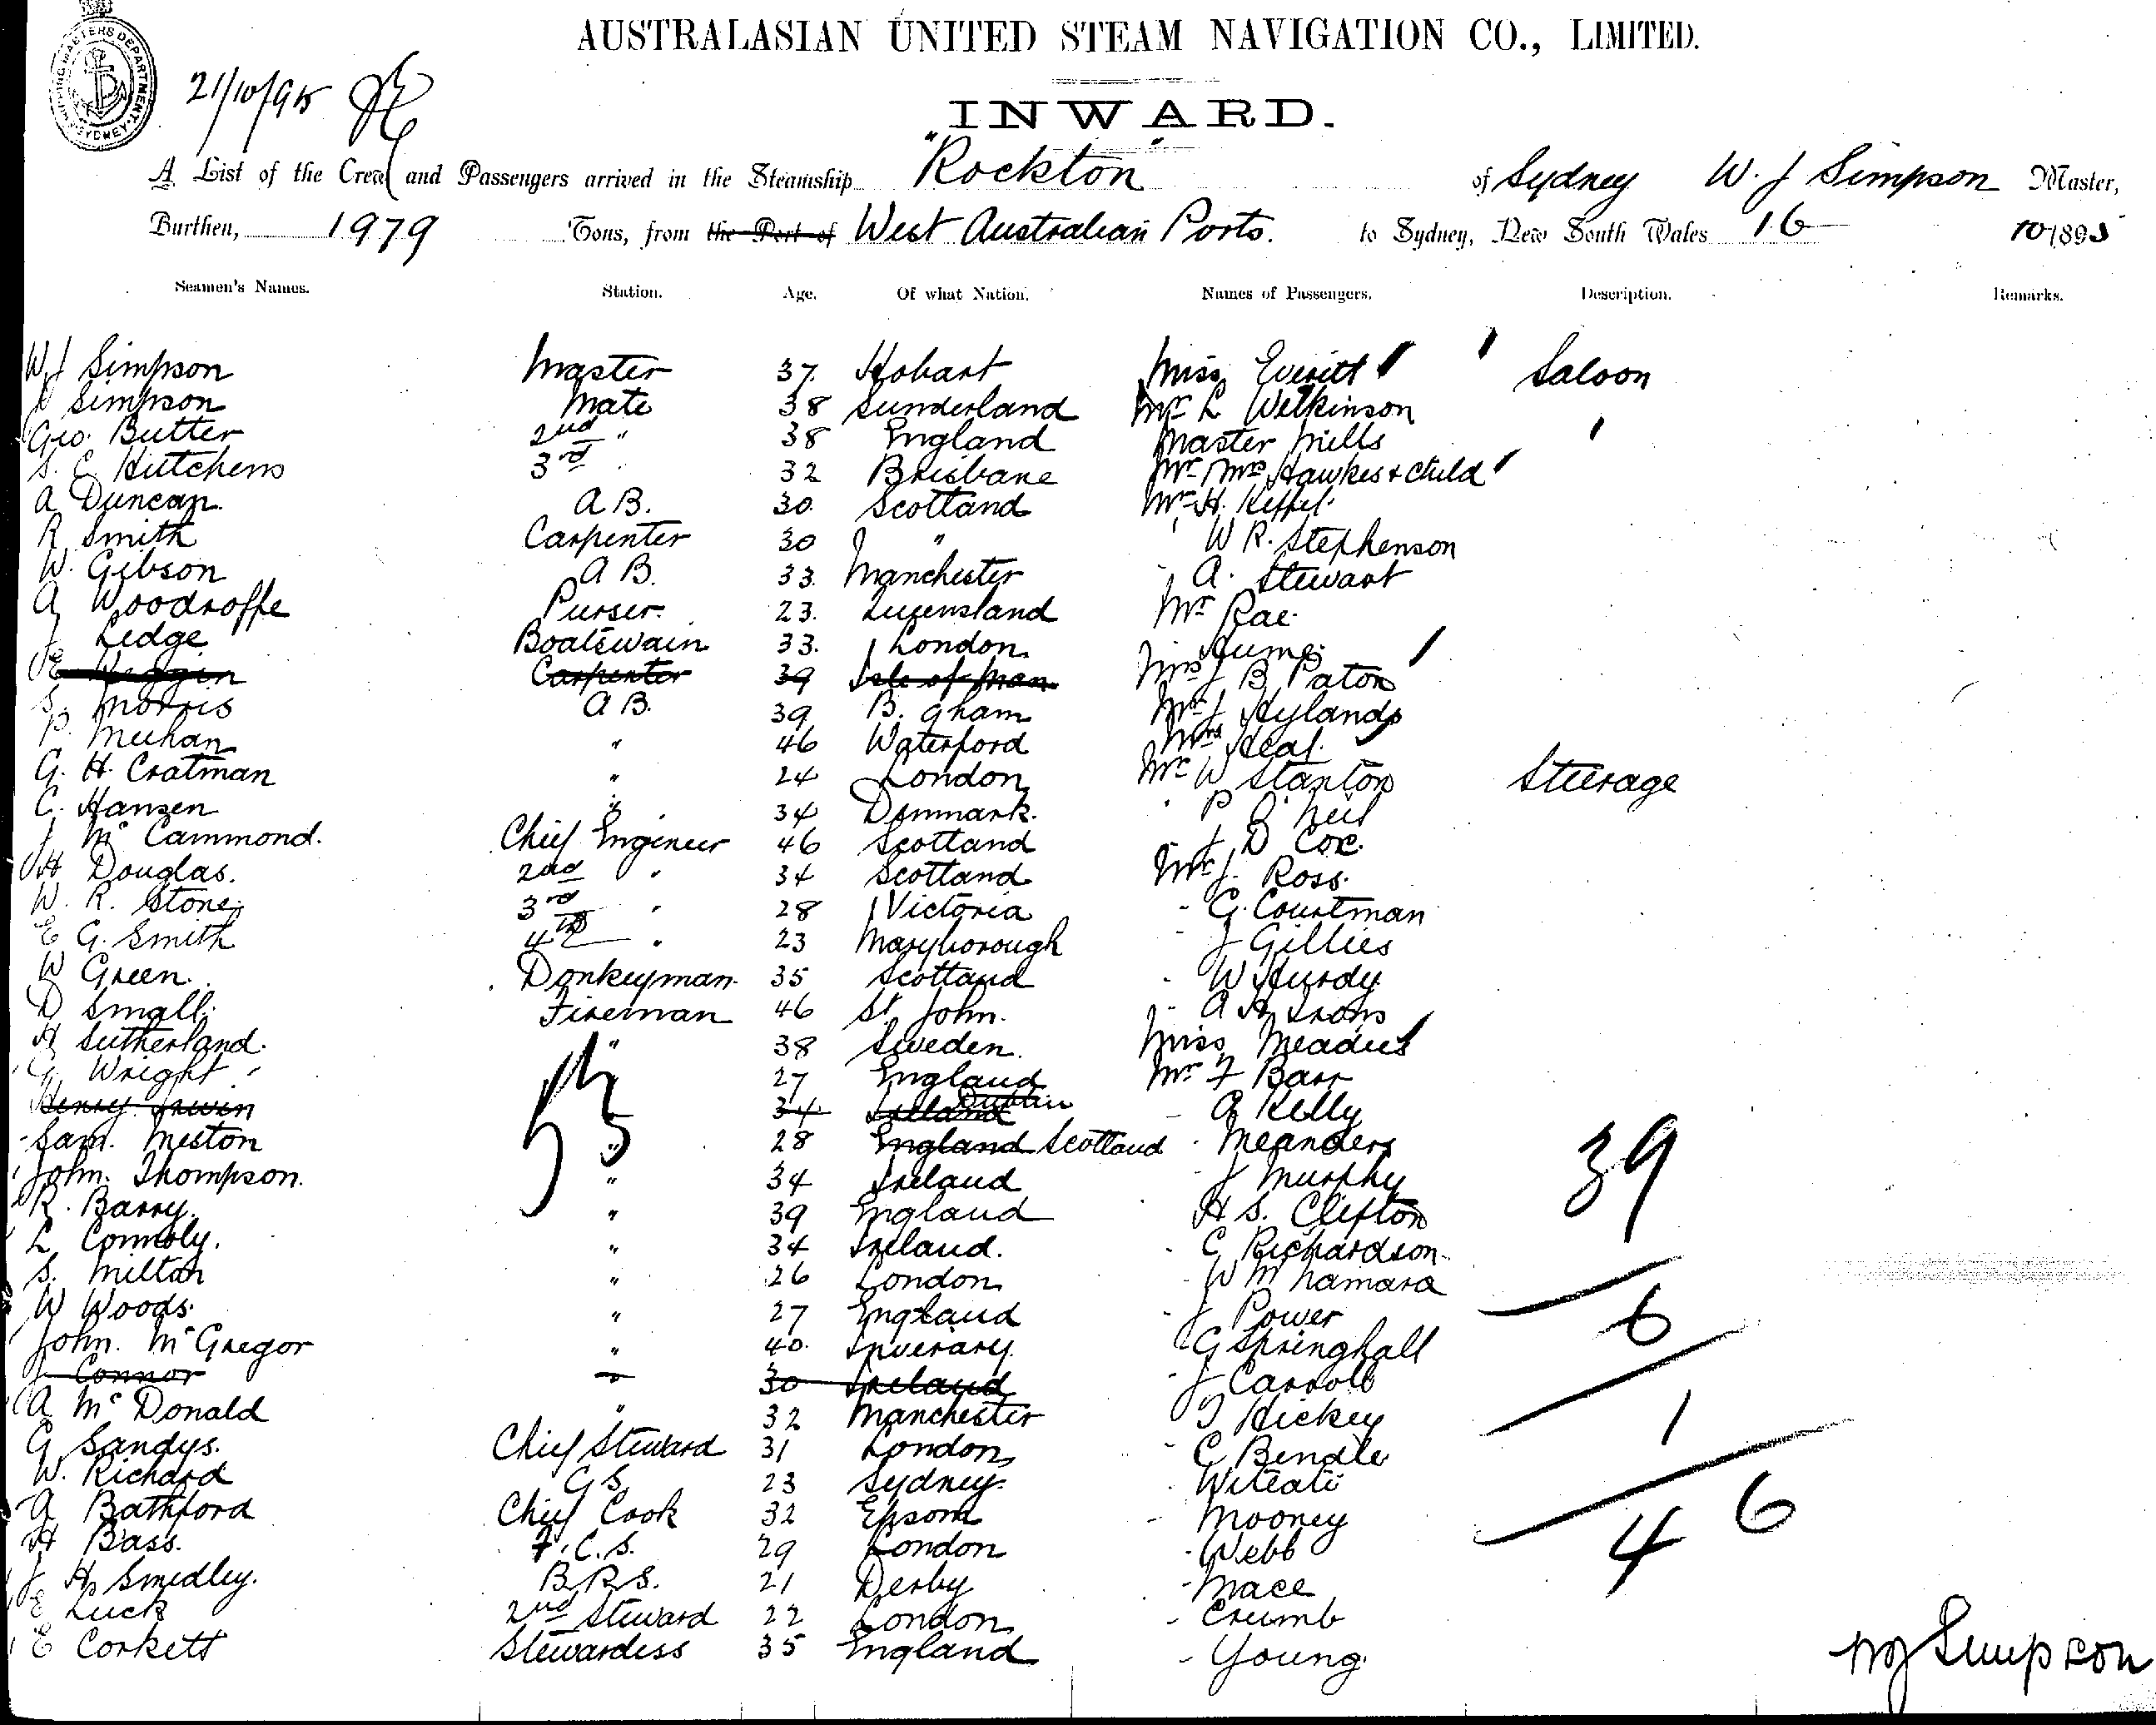 AUSTRALASIAN UNITED STEAM NAVIGATION CO., LIMITED.
21/10/95
INWARD.
A List of the Crew and Passengers arrived in the Steamship "Rockton" of Sydney W. J Simpson Master,
Burthen, 1979 Tons, from the Port of West Australian Ports. to Sydney, New South Wales 16 10/1895
Seamen's Names. Station. Age. Of what Nation. Names of Passengers. Description. Remarks.
W J Simpson Master 37. Hobart Miss Everitt Saloon
Simpson Mate 38 Sunderland Mr L Wilkinson
Geo. Butter 2nd " 38 England Master Mills
S. E. Hutchens 3rd " 32 Brisbane Mr Mrs Hawkes & child
A Duncan. A B. 30. Scotland Mr H.
R Smith Carpenter 30 " W R. Stephenson
W. Gibson A B. 33. Manchester A. Stewart
A Woodroffe Purser. 23. Queensland Mr Rae.
J Ledge Boatswain 33. London Hume
E Carpenter 39 Isle of Man Mrs J B Paton
S. Morris A B. 39 B. gham J Hylands
P. Meehan " 46 Waterford Mrs Heal.
G. H. Coatman " 24 London Mr W Stanton Steerage
C. Hansen " 34 Denmark. P O'Neil
J McCammond. Chief Engineer 46 Scotland J D Cox.
H Douglas. 2nd " 34 Scotland Mr J. Ross.
W. R. Stone 3rd " 28 Victoria - G. Courtman
E G. Smith 4th " 23 Maryborough - J Gillies
W Green. Donkeyman. 35 Scotland - W Hurdy
D Small. Fireman 46 St. John. - A H Irons
H Sutherland. " 38 Sweden. Miss Meadus
G. Wright 27 England Mr F Barr
Henry Irwin 34 Ireland Dublin - A Kelly
Sam. Meston " 28 England Scotland - Meanders
John. Thompson. " 34 Ireland - J Murphy 39
R. Barry. " 39 England H S. Clifton
L Connoly. " 34 Ireland. - C Richardson
S. Milton " 26 London - W McNamara
W Woods. " 27 England - J Power 6
John. McGregor " 40. Inverary. G Springhall
J Connor " 30 Ireland - J Carroll
A McDonald " 32 Manchester T Hickey 1
G Sandys. Chief Steward 31 London - C Bendle
W. Richard G S. 23 Sydney.
A Bathford Chief Cook 32 Epsom - Mooney 46
H Bass. F. C. S. 29 London - Webb
J H Smedley. B. R. S. 21 Derby - Mace
E Luck 2nd Steward 22 London - Crumb
E Corkett Stewardess 35 England - Young.
W J Simpson